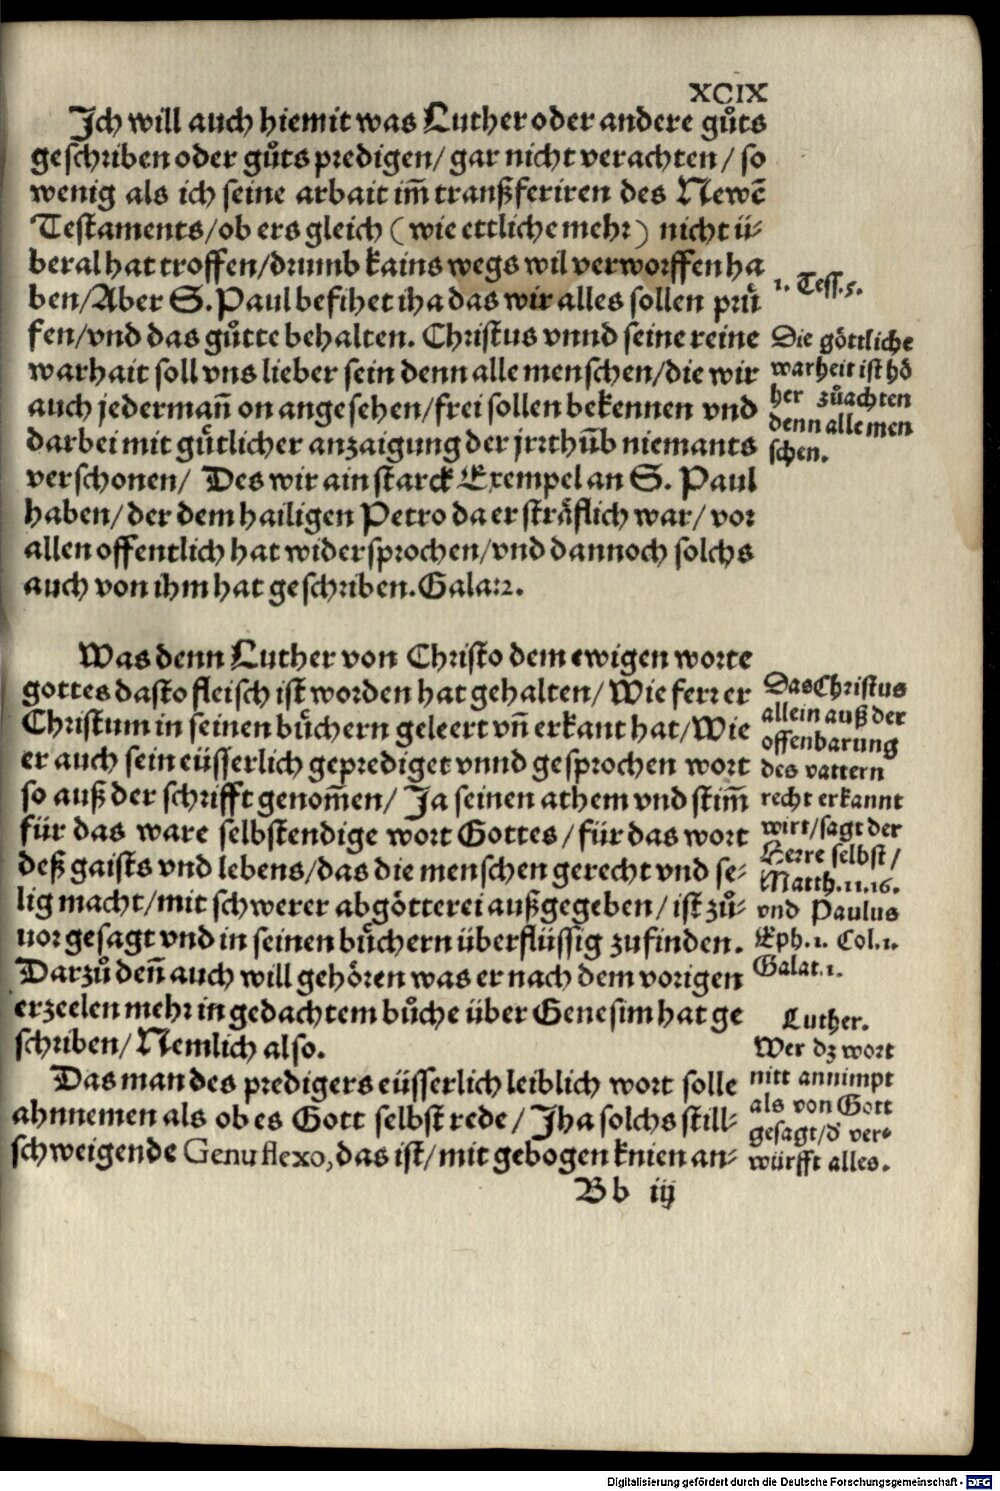 XCIX
Ich will auch hiemit was Luther oder andere gůts
geschriben oder gůts predigen/ gar nicht verachten/ so
wenig als ich seine arbait im̃ tranßferiren des Newẽ
Testaments/ob ers gleich (wie ettliche mehr) nicht ü-
beral hat troffen/drumb kains wegs wil verworffen ha
ben/Aber S. Paul befihet iha das wir alles sollen prü
fen/vnd das gůtte behalten. Christus vnnd seine reine
warhait soll vns lieber sein denn alle menschen/die wir
auch jederman̄ on angesehen/frei sollen bekennen vnd
darbei mit gütlicher anzaigung der jrrthūb niemants
verschonen/ Des wir ain starck Exempel an S. Paul
haben/der dem hailigen Petro da er sträflich war/ vor
allen offentlich hat widersprochen/vnd dannoch solchs
auch von ihm hat geschriben. Gala:2.
1. Tess.5.
Die göttliche
warheit ist hö
her zůachten
denn alle men
schen.
Was denn Luther von Christo dem ewigen worte
gottes das to fleisch ist worden hat gehalten/ Wie ferr er
Christum in seinen büchern geleert vn̄ erkant hat/Wie
er auch sein eüsserlich geprediget vnnd gesprochen wort
so auß der schrifft genom̄en/ Ja seinen athem vnd stim̄
für das ware selbstendige wort Gottes/für das wort
deß gaists vnd lebens/das die menschen gerecht vnd se-
lig macht/mit schwerer abgötterei außgegeben/ ist zů-
uor gesagt vnd in seinen büchern überflüssig zufinden.
Darzů den̄ auch will gehören was er nach dem vorigen
erzeelen mehr in gedachtem bůche über Genesim hat ge
schriben/ Nemlich also.
Das Christus
allein auß der
offenbarung
des vattern
recht erkannt
wirt/sagt der
Herre selbst/
Matth.11.16.
vnd Paulus
Eph.1. Col.1.
Galat.1.
Das man des predigers eüsserlich leiblich wort solle
ahnnemen als ob es Gott selbst rede/ Jha solchs still-
schweigende Genu flexo, das ist/mit gebogen knien an-
Luther.
Wer dz wort
nitt annimpt
als von Gott
gesagt/d̕ ver-
würfft alles.
Bb iij
Digitalisierung gefördert durch die Deutsche Forschungsgemeinschaft - DFG